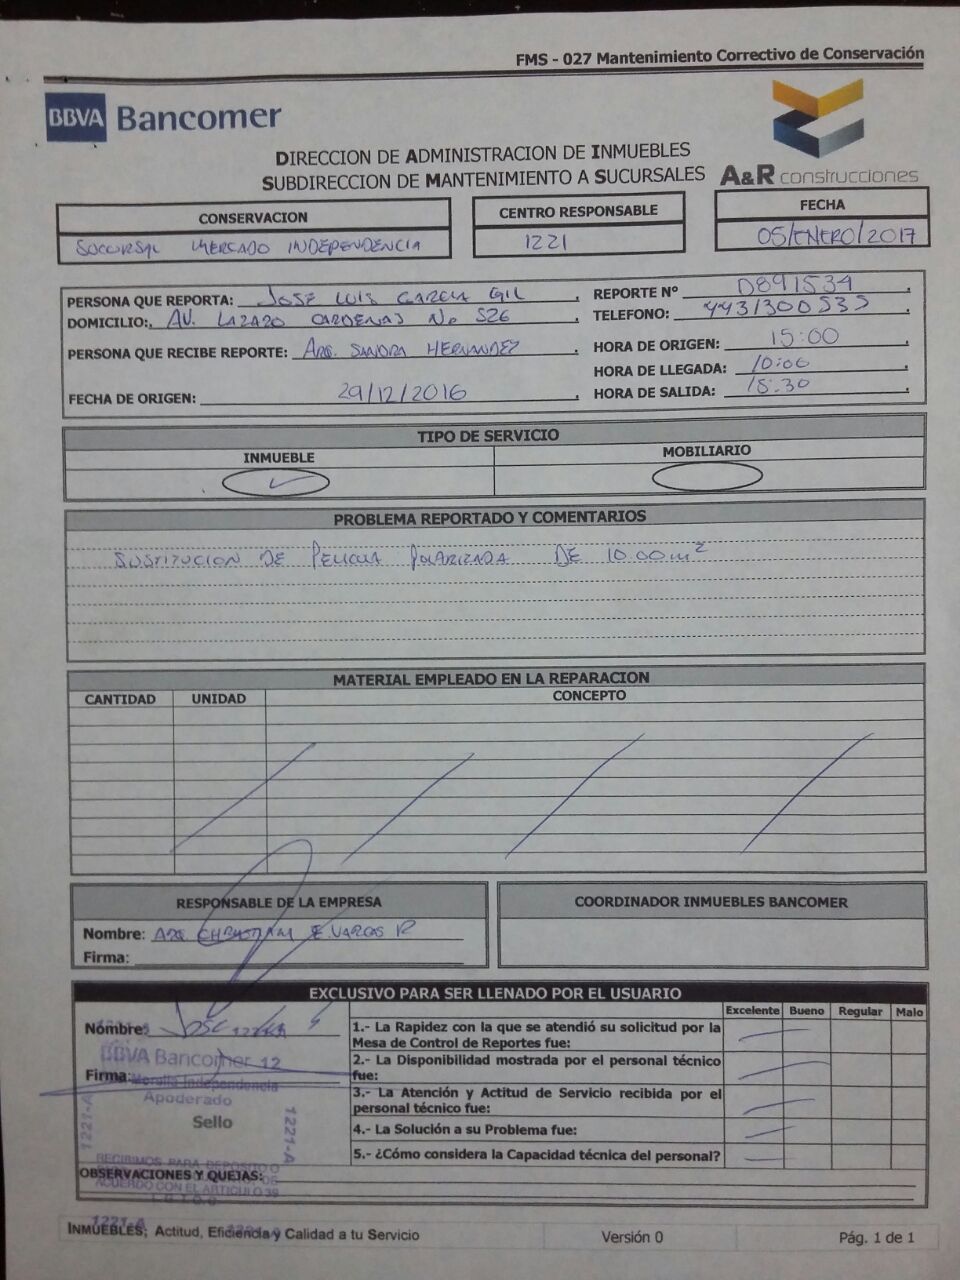 FMS - 027 Mantenimiento Correctivo de Conservación
BBVA Bancomer
DIRECCION DE ADMINISTRACION DE INMUEBLES
SUBDIRECCION DE MANTENIMIENTO A SUCURSALES
A&R construcciones
CONSERVACION
SUCURSAL MERCADO INDEPENDENCIA
CENTRO RESPONSABLE
1221
FECHA
05/ENERO/2017
PERSONA QUE REPORTA: JOSE LUIS GARCIA GIL
REPORTE Nº D891534
DOMICILIO: AV. LAZARO CARDENAS No 526
TELEFONO: 4431300535
PERSONA QUE RECIBE REPORTE: ARQ. SANDRA HERNANDEZ
HORA DE ORIGEN: 15:00
HORA DE LLEGADA: 10:00
FECHA DE ORIGEN: 29/12/2016
HORA DE SALIDA: 18:30
TIPO DE SERVICIO
INMUEBLE MOBILIARIO
PROBLEMA REPORTADO Y COMENTARIOS
SUSTITUCION DE PELICULA POLARIZADA DE 10.00 m²
MATERIAL EMPLEADO EN LA REPARACION
CANTIDAD UNIDAD CONCEPTO
RESPONSABLE DE LA EMPRESA
Nombre: ARQ. CHRISTIAM E. VARGAS R
Firma:
COORDINADOR INMUEBLES BANCOMER
EXCLUSIVO PARA SER LLENADO POR EL USUARIO
Excelente Bueno Regular Malo
Nombre: Jose
Firma:
BBVA Bancomer 12
Morelia Independencia
Apoderado
Sello
1221-A
1221-A
RECIBIMOS PARA DEPOSITO O
ACUERDO CON EL ARTICULO 39
1.- La Rapidez con la que se atendió su solicitud por la
Mesa de Control de Reportes fue:
2.- La Disponibilidad mostrada por el personal técnico
fue:
3.- La Atención y Actitud de Servicio recibida por el
personal técnico fue:
4.- La Solución a su Problema fue:
5.- ¿Cómo considera la Capacidad técnica del personal?
OBSERVACIONES Y QUEJAS:
1221-A
INMUEBLES; Actitud, Eficiencia y Calidad a tu Servicio
Versión 0
Pág. 1 de 1